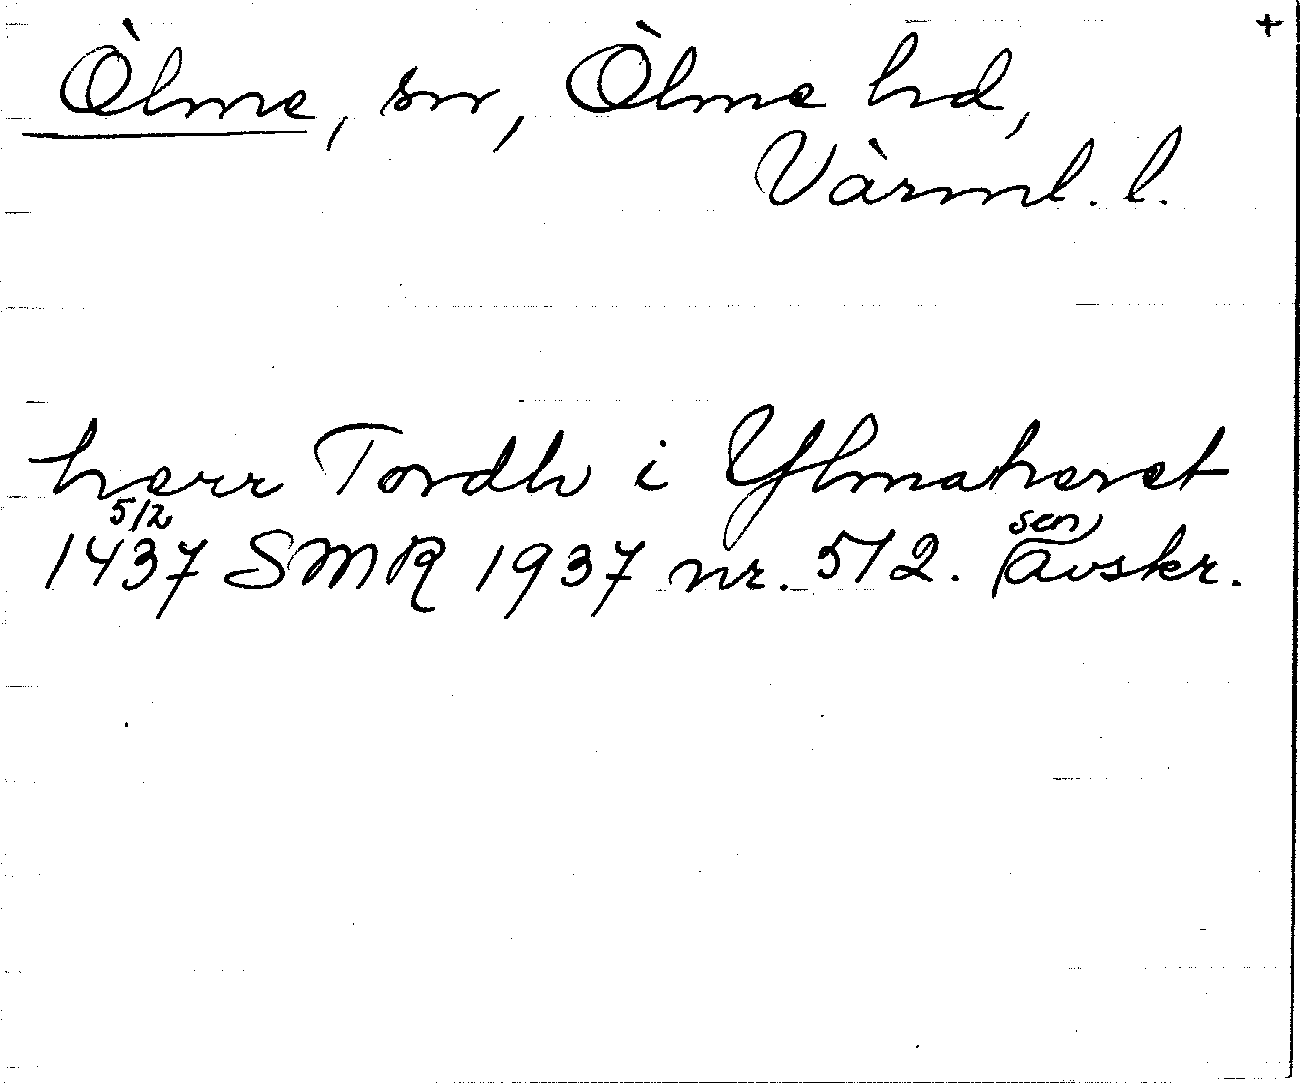 +
Ölme, sn, Ölme hd,
Värml. l.
herr Tordh i Ylmaheret
5/2
1437 SMR 1937 nr. 512. (sen) avskr.